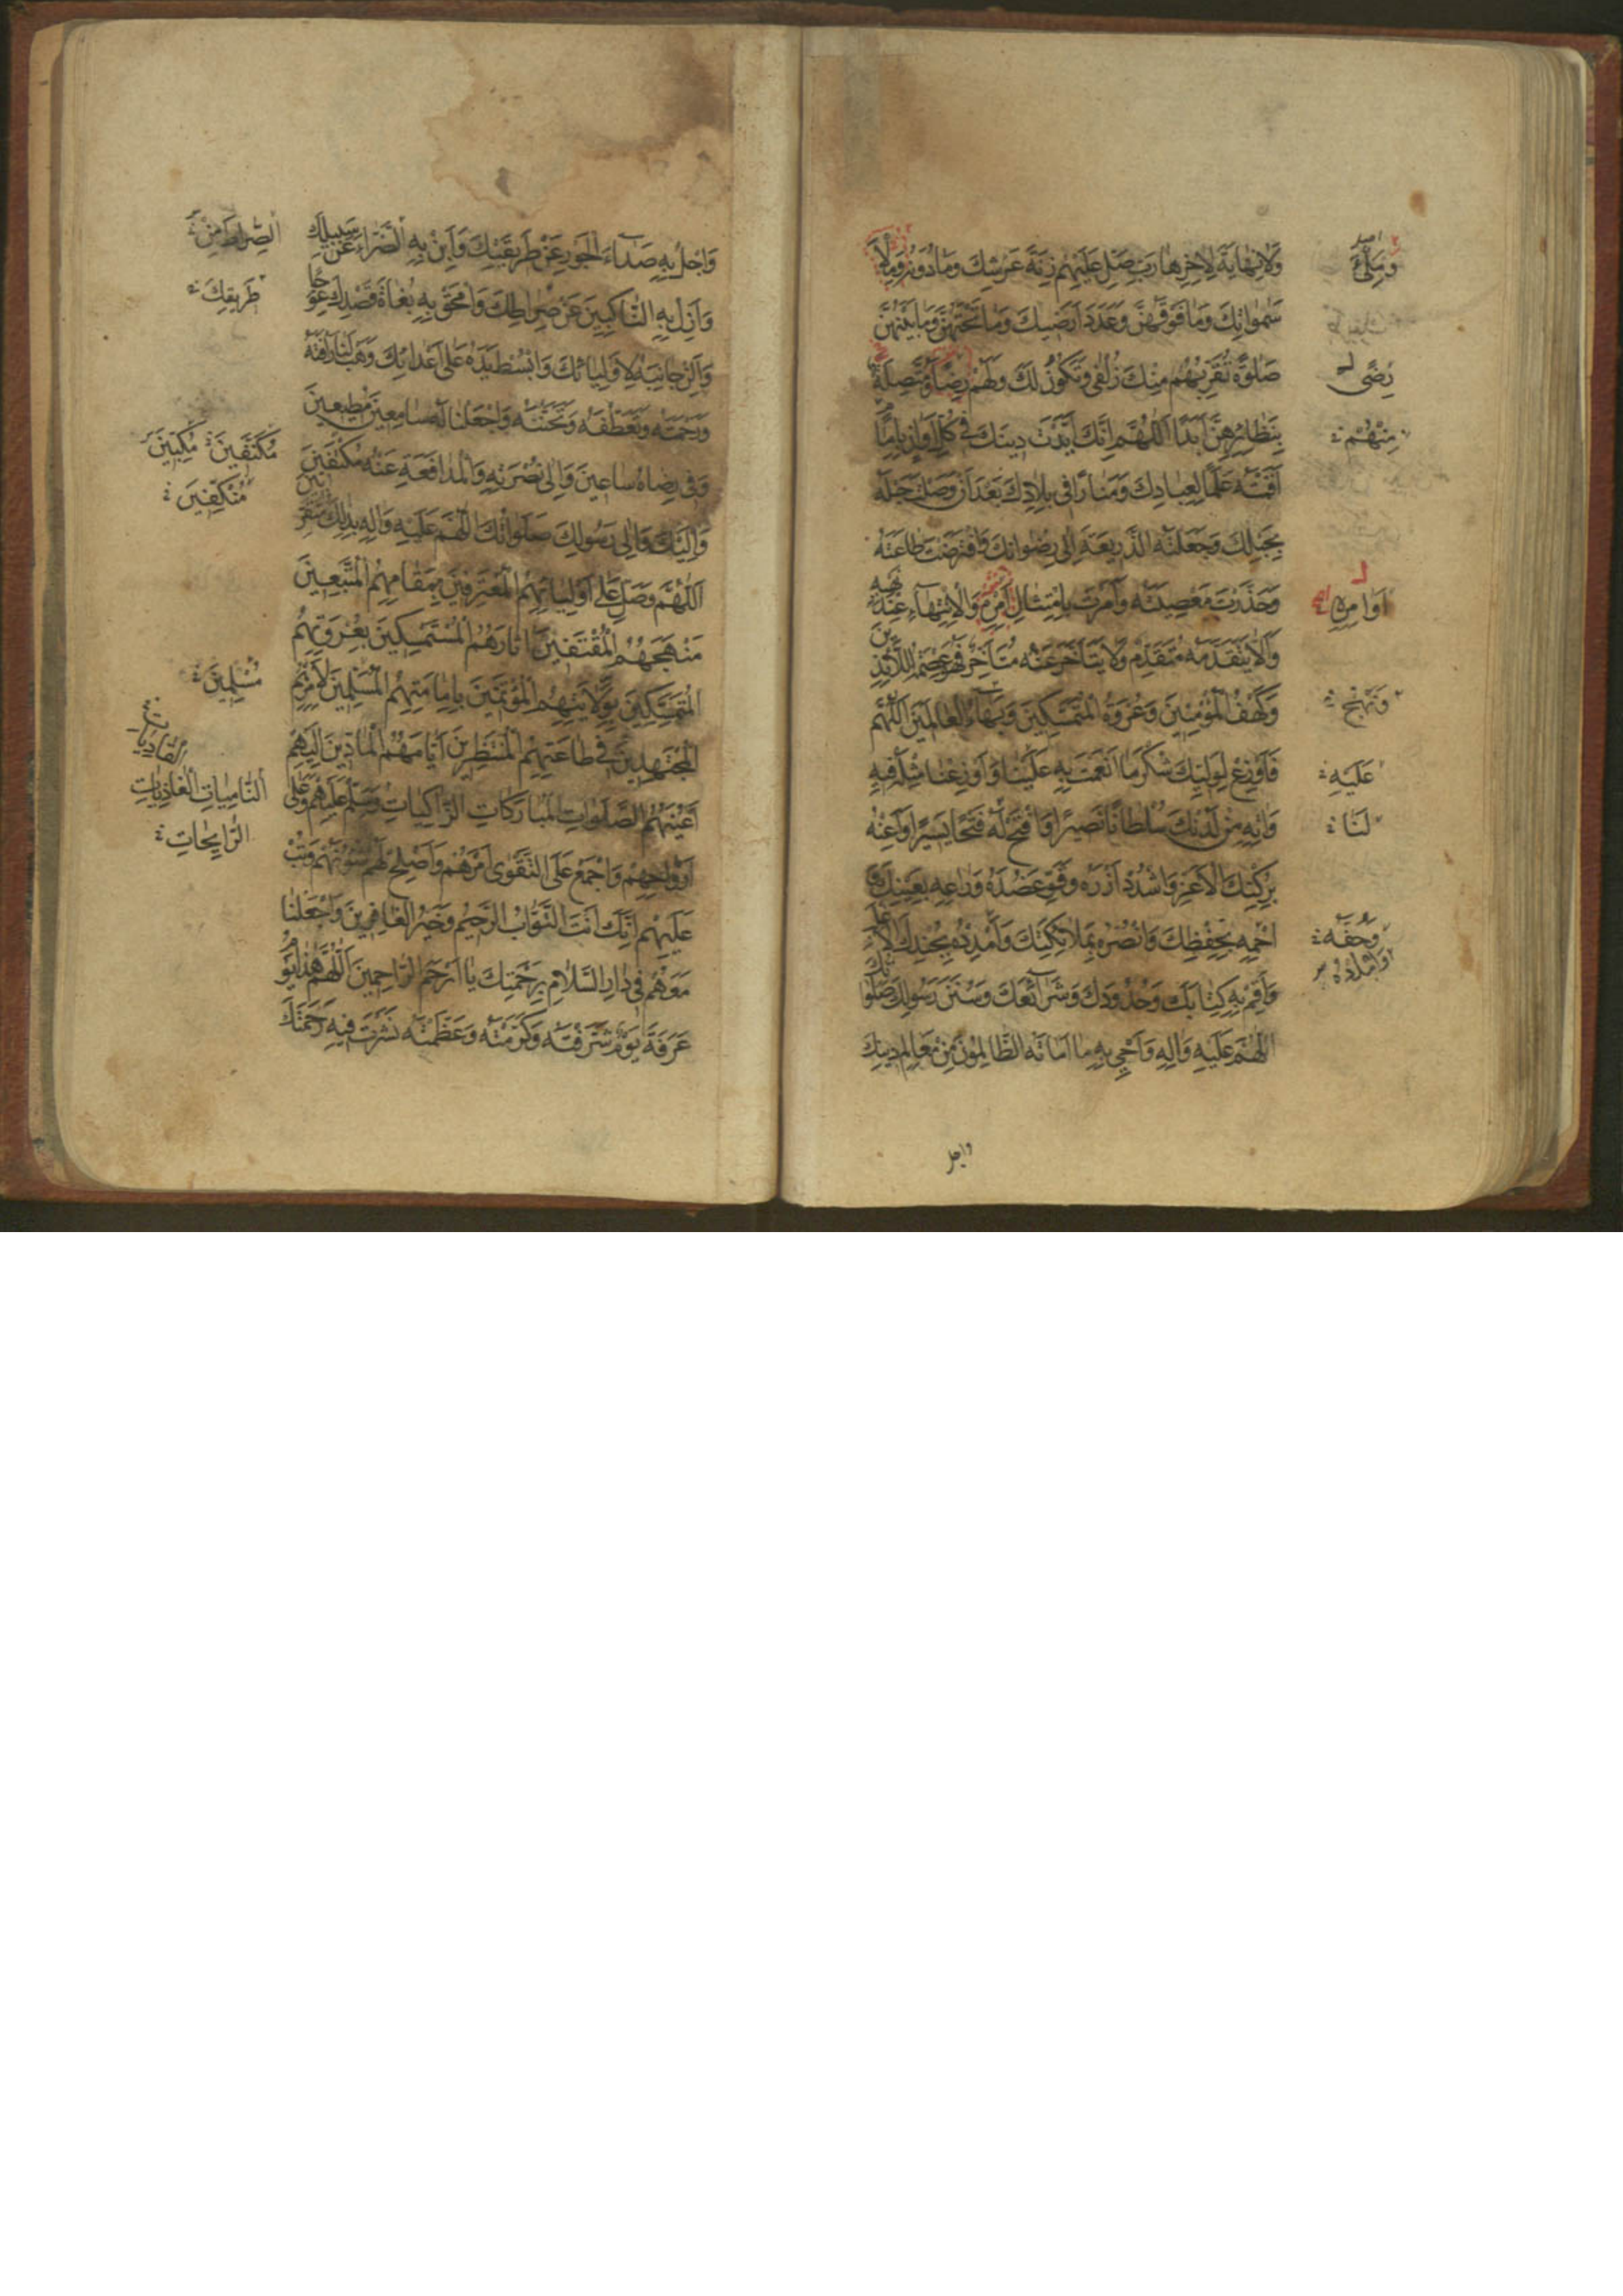 وَلَا نِهَايَةَ لِاٰخِرِهَا رَبِّ صَلِّ عَلَيْهِمْ زِنَةَ عَرْشِكَ وَمَا دُونَهُ وَمِلْأَ
سَمٰوَاتِكَ وَمَا فَوْقَهُنَّ وَعَدَدَ اَرَضِيكَ وَمَا تَحْتَهُنَّ وَمَا بَيْنَهُنَّ
صَلٰوةً تُقَرِّبُهُمْ مِنْكَ زُلْفٰى وَتَكُونُ لَكَ وَلَهُمْ رِضًا وَمُتَّصِلَةً
بِنَظَائِرِهِنَّ اَبَدًا اَللّٰهُمَّ اِنَّكَ اَيَّدْتَ دِينَكَ فِي كُلِّ اَوَانٍ بِاِمَامٍ
اَقَمْتَهُ عَلَمًا لِعِبَادِكَ وَمَنَارًا فِي بِلَادِكَ بَعْدَ اَنْ وَصَلْتَ حَبْلَهُ
بِحَبْلِكَ وَجَعَلْتَهُ الذَّرِيعَةَ اِلٰى رِضْوَانِكَ وَافْتَرَضْتَ طَاعَتَهُ
وَحَذَّرْتَ مَعْصِيَتَهُ وَاَمَرْتَ بِامْتِثَالِ اَمْرِهِ وَالْاِنْتِهَاءِ عِنْدَ نَهْيِهِ
وَاَلَّا يَتَقَدَّمَهُ مُتَقَدِّمٌ وَلَا يَتَاَخَّرَ عَنْهُ مُتَاَخِّرٌ فَهُوَ عِصْمَةُ اللَّائِذِينَ
وَكَهْفُ الْمُؤْمِنِينَ وَعُرْوَةُ الْمُتَمَسِّكِينَ وَبَهَاءُ الْعَالَمِينَ اَللّٰهُمَّ
فَاَوْزِعْ لِوَلِيِّكَ شُكْرَ مَا اَنْعَمْتَ بِهِ عَلَيْنَا وَاَوْزِعْنَا مِثْلَهُ فِيهِ
وَاٰتِهِ مِنْ لَدُنْكَ سُلْطَانًا نَصِيرًا وَافْتَحْ لَهُ فَتْحًا يَسِيرًا وَاَعِنْهُ
بِرُكْنِكَ الْاَعَزِّ وَاشْدُدْ اَزْرَهُ وَقَوِّ عَضُدَهُ وَرَاعِهِ بِعَيْنِكَ وَ
احْمِهِ بِحِفْظِكَ وَانْصُرْهُ بِمَلَائِكَتِكَ وَامْدُدْهُ بِجُنْدِكَ الْاَغْلَبِ
وَاَقِمْ بِهِ كِتَابَكَ وَحُدُودَكَ وَشَرَائِعَكَ وَسُنَنَ رَسُولِكَ صَلَوَاتُكَ
اللّٰهُمَّ عَلَيْهِ وَاٰلِهِ وَاَحْيِ بِهِ مَا اَمَاتَهُ الظَّالِمُونَ مِنْ مَعَالِمِ دِينِكَ
واجل
رِضًى
مِنْهُمْ
اَوَامِرِهِ
وَنَهْجُ
عَلَيْهِ
لَنَا
وَحُفَّهُ
وَاجْلُ بِهِ صَدَاءَ الْجَوْرِ عَنْ طَرِيقَتِكَ وَاَبِنْ بِهِ الضَّرَّاءَ عَنْ سَبِيلِكَ
وَاَزِلْ بِهِ النَّاكِبِينَ عَنْ صِرَاطِكَ وَامْحَقْ بِهِ بُغَاةَ قَصْدِكَ عِوَجًا
وَاَلِنْ جَانِبَهُ لِاَوْلِيَائِكَ وَابْسُطْ يَدَهُ عَلٰى اَعْدَائِكَ وَهَبْ لَنَا رَاْفَتَهُ
وَرَحْمَتَهُ وَتَعَطُّفَهُ وَتَحَنُّنَهُ وَاجْعَلْنَا لَهُ سَامِعِينَ مُطِيعِينَ
وَفِي رِضَاهُ سَاعِينَ وَاِلٰى نُصْرَتِهِ وَالْمُدَافَعَةِ عَنْهُ مُكْنِفِينَ
وَاِلَيْكَ وَاِلٰى رَسُولِكَ صَلَوَاتُكَ اللّٰهُمَّ عَلَيْهِ وَاٰلِهِ بِذٰلِكَ مُتَقَرِّبِينَ
اَللّٰهُمَّ وَصَلِّ عَلٰى اَوْلِيَائِهِمُ الْمُعْتَرِفِينَ بِمَقَامِهِمُ الْمُتَّبِعِينَ
مَنْهَجَهُمُ الْمُقْتَفِينَ اٰثَارَهُمُ الْمُسْتَمْسِكِينَ بِعُرْوَتِهِمُ
الْمُتَمَسِّكِينَ بِوَلَايَتِهِمُ الْمُؤْتَمِّينَ بِاِمَامَتِهِمُ الْمُسَلِّمِينَ لِاَمْرِهِمُ
الْمُجْتَهِدِينَ فِي طَاعَتِهِمُ الْمُنْتَظِرِينَ اَيَّامَهُمُ الْمَادِّينَ اِلَيْهِمْ
اَعْيُنَهُمُ الصَّلَوَاتِ الْمُبَارَكَاتِ الزَّاكِيَاتِ وَسَلِّمْ عَلَيْهِمْ وَعَلٰى
اَرْوَاحِهِمْ وَاجْمَعْ عَلَى التَّقْوٰى اَمْرَهُمْ وَاَصْلِحْ لَهُمْ شُؤُنَهُمْ وَتُبْ
عَلَيْهِمْ اِنَّكَ اَنْتَ التَّوَّابُ الرَّحِيمُ وَخَيْرُ الْغَافِرِينَ وَاجْعَلْنَا
مَعَهُمْ فِي دَارِ السَّلَامِ بِرَحْمَتِكَ يَا اَرْحَمَ الرَّاحِمِينَ اَللّٰهُمَّ هٰذَا يَوْمُ
عَرَفَةَ يَوْمٌ شَرَّفْتَهُ وَكَرَّمْتَهُ وَعَظَّمْتَهُ نَشَرْتَ فِيهِ رَحْمَتَكَ
الصِّرَاطِ مِنْ
طَرِيقِكَ
مُكْتَنِفِينَ
مُسْلِمِينَ
النَّامِيَاتِ الْغَادِيَاتِ
الرَّايِحَاتِ